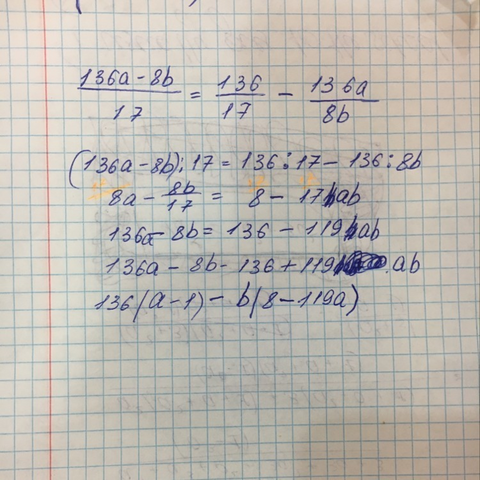 (136a - 8b)/17 = 136/17 - 136a/8b
(136a - 8b) : 17 = 136 : 17 - 136 : 8b
8a - 8b/17 = 8 - 17ab
136a - 8b = 136 - 119ab
136a - 8b - 136 + 119 ab
136(a - 1) - b(8 - 119a)